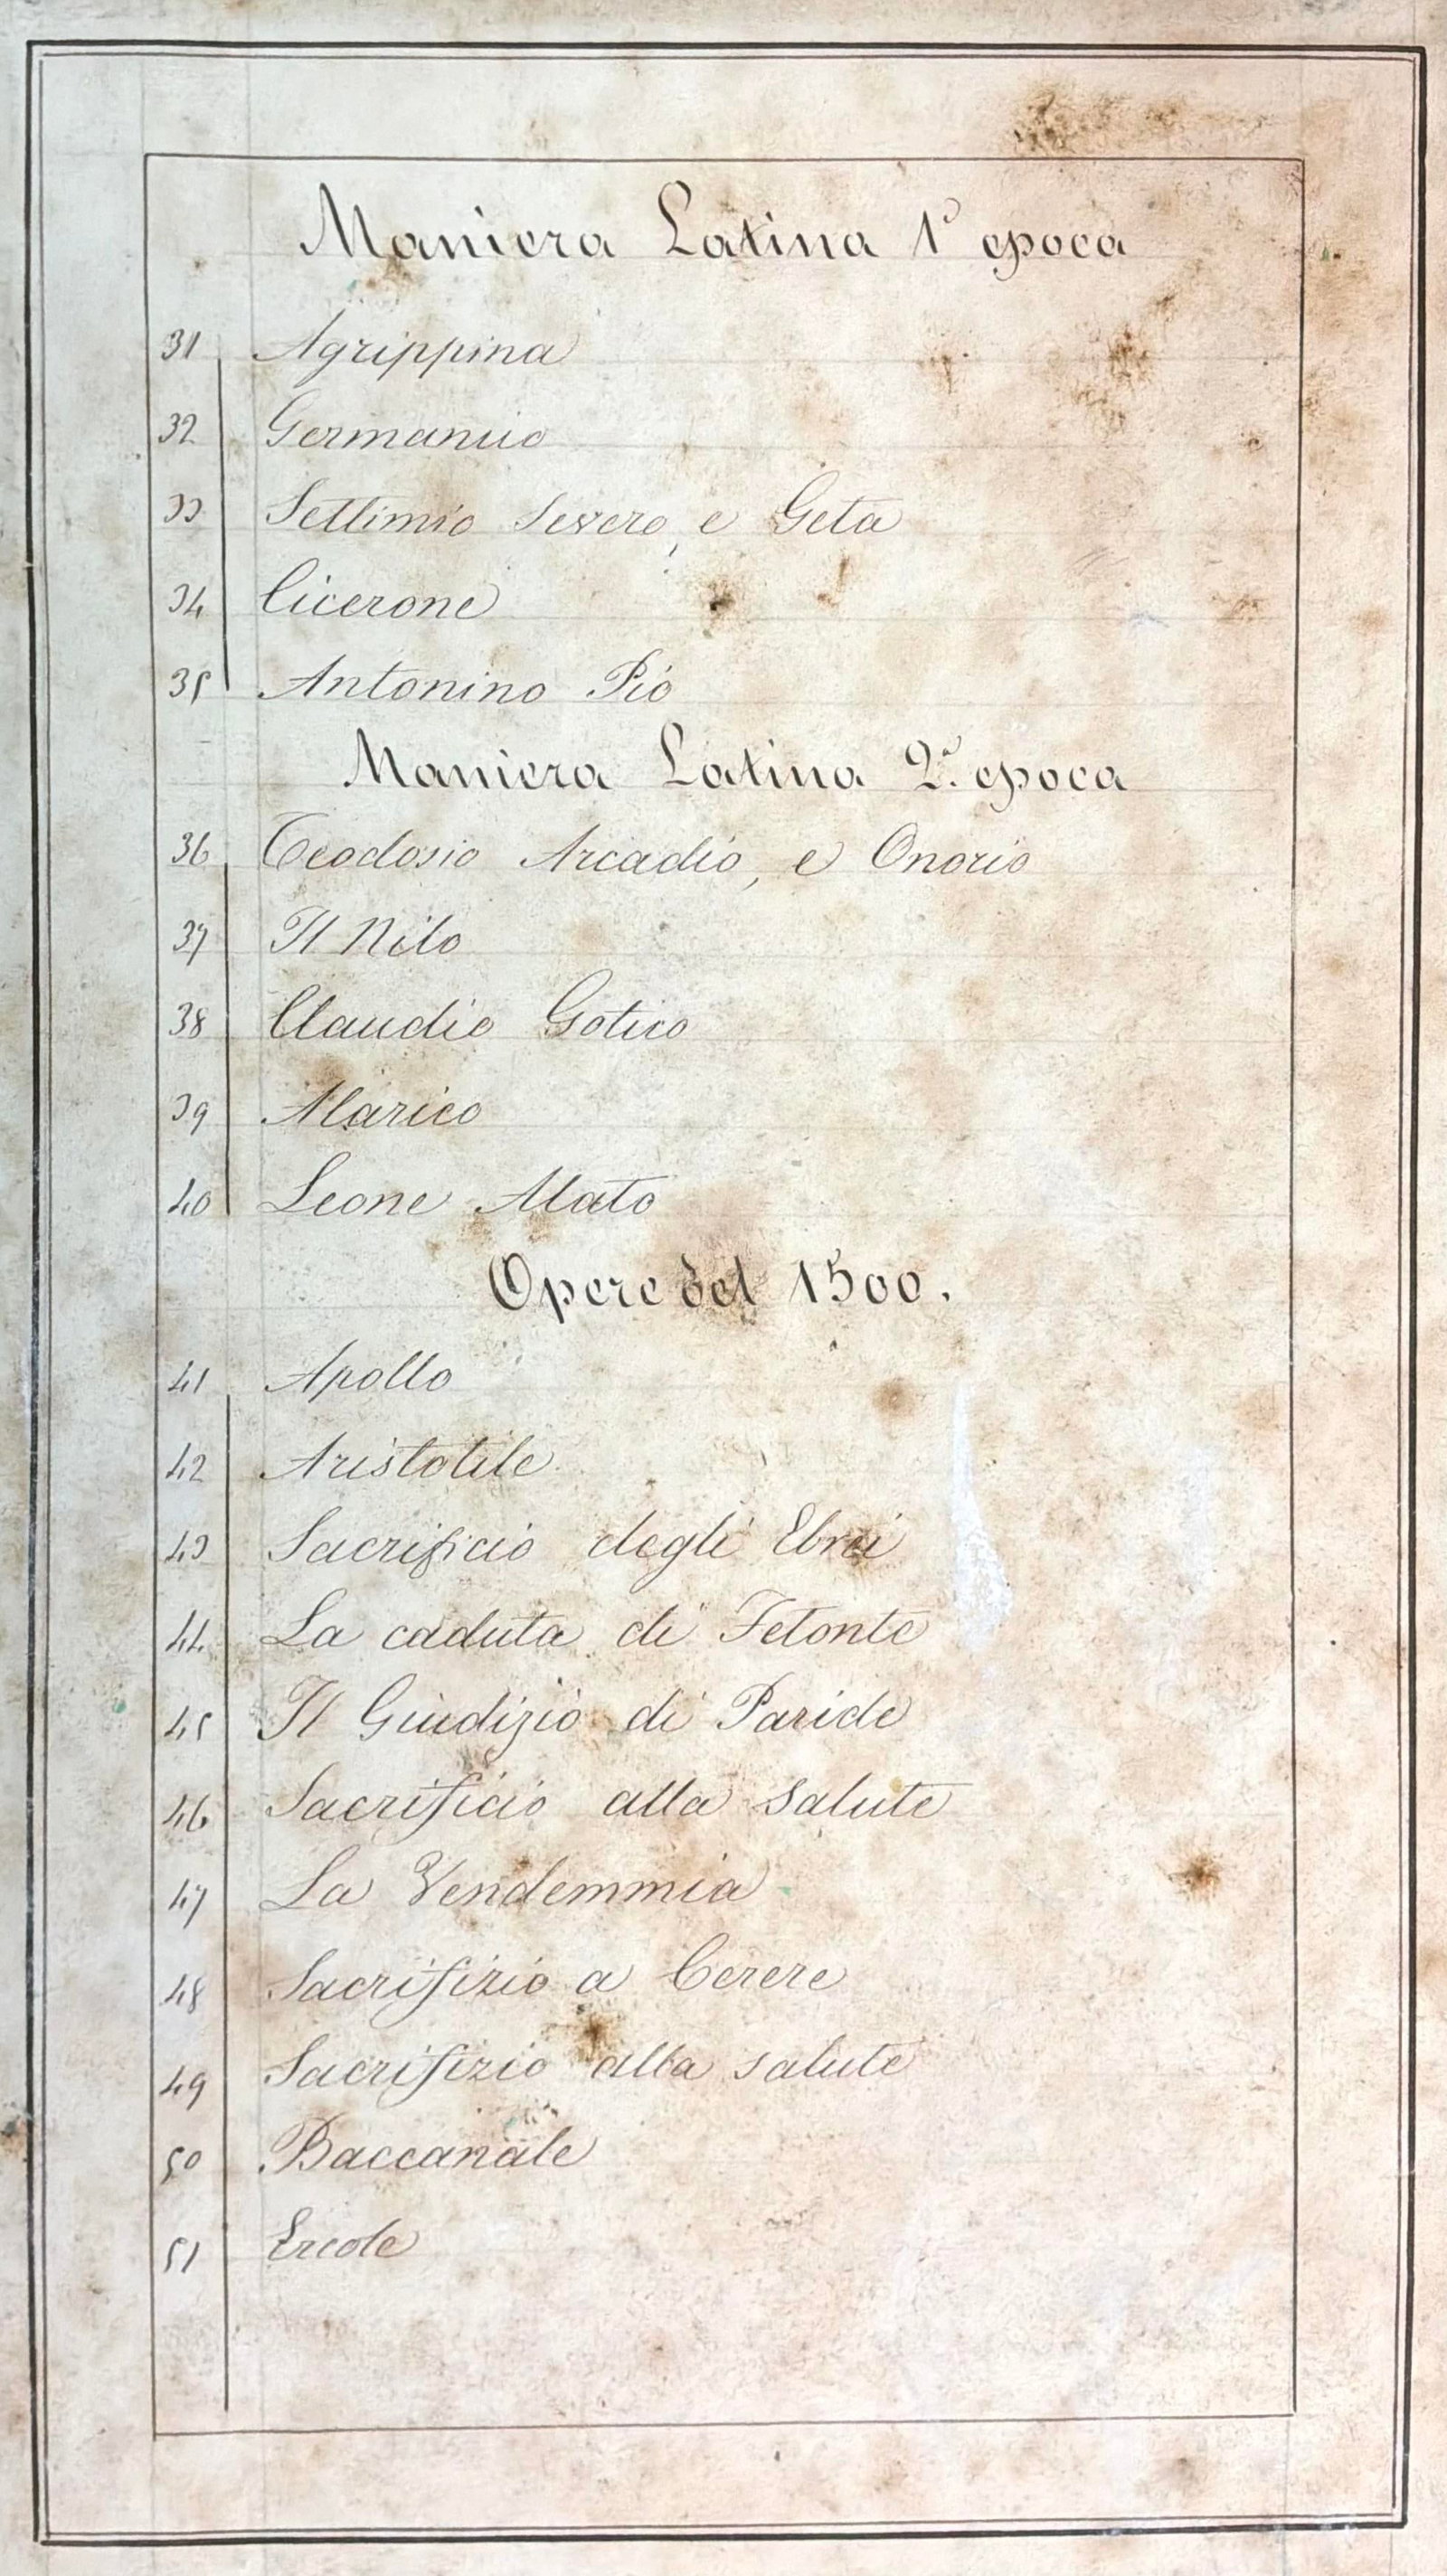 Maniera Latina 1ª epoca
31 Agrippina
32 Germanico
33 Settimio Severo, e Geta
34 Cicerone
35 Antonino Pio
Maniera Latina 2ª. epoca
36 Teodosio Arcadio, e Onorio
37 Il Nilo
38 Claudio Gotico
39 Alarico
40 Leone Alato
Opere del 1500.
41 Apollo
42 Aristotile
43 Sacrificio degli Ebrei
44 La caduta di Fetonte
45 Il Giudizio di Paride
46 Sacrificio alla Salute
47 La Vendemmia
48 Sacrifizio a Cerere
49 Sacrifizio alla salute
50 Baccanale
51 Ercole